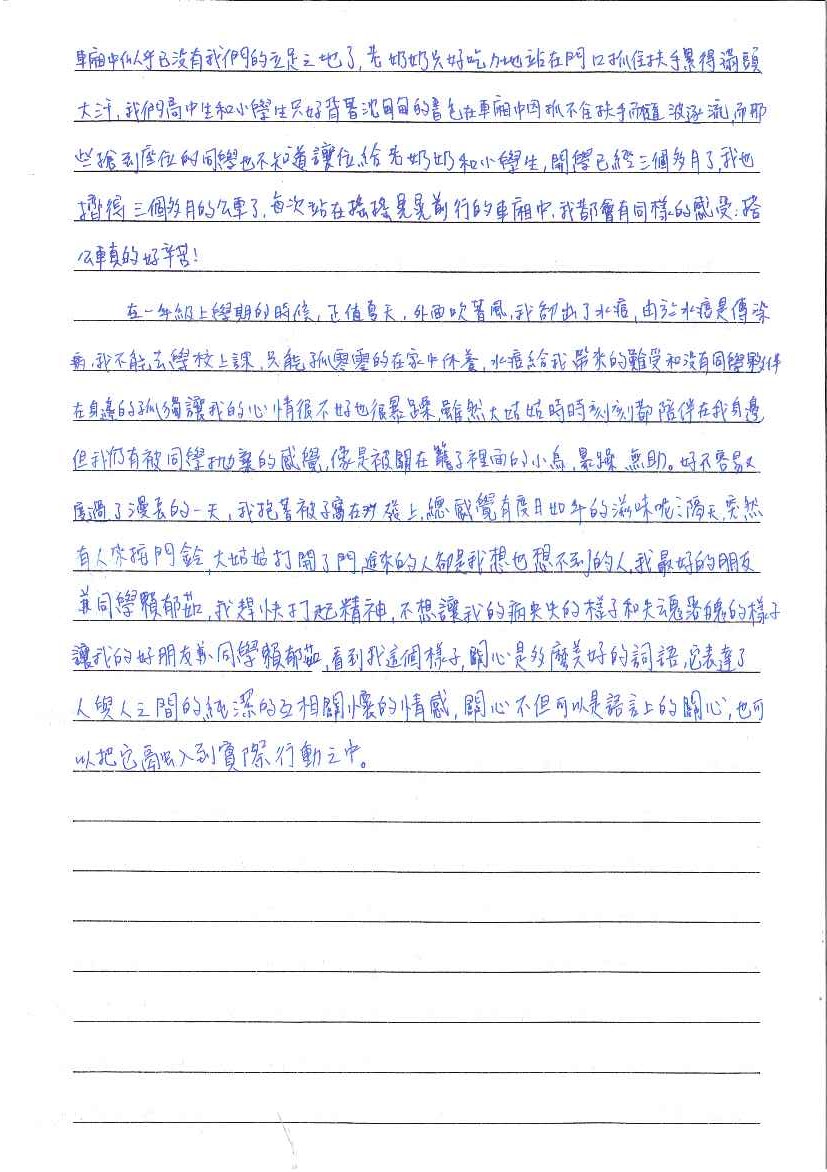 車廂中似乎已沒有我們的立足之地了,老奶奶只好吃力地站在門口抓住扶手累得滿頭
大汗,我們高中生和小學生只好背著沈甸甸的書包在車廂中因抓不住扶手而隨波逐流,而那
些搶到座位的同學也不知道讓位給老奶奶和小學生,開學已經三個多月了,我也
擠得三個多月的公車了,每次站在搖搖晃晃前行的車廂中,我都會有同樣的感受:搭
公車真的好辛苦!
在一年級上學期的時候,正值夏天,外面吹著風,我卻出了水痘,由於水痘是傳染
病,我不能去學校上課,只能孤零零的在家中休養,水痘給我帶來的難受和沒有同學夥伴
在身邊的孤獨讓我的心情很不好也很暴躁,雖然大姑姑時時刻刻都陪伴在我身邊
但我仍有被同學拋棄的感覺,像是被關在籠子裡面的小鳥,暴躁、無助。好不容易又
度過了漫長的一天,我抱著被子窩在沙發上,總感覺有度日如年的滋味呢;隔天,突然
有人來按門鈴,大姑姑打開了門,進來的人卻是我想也想不到的人,我最好的朋友
兼同學賴郁茹,我趕快打起精神,不想讓我的病央央的樣子和失魂落魄的樣子
讓我的好朋友兼同學賴郁茹,看到我這個樣子,關心是多麼美好的詞語,它表達了
人與人之間的純潔的互相關懷的情感,關心不但可以是語言上的關心,也可
以把它融入到實際行動之中。